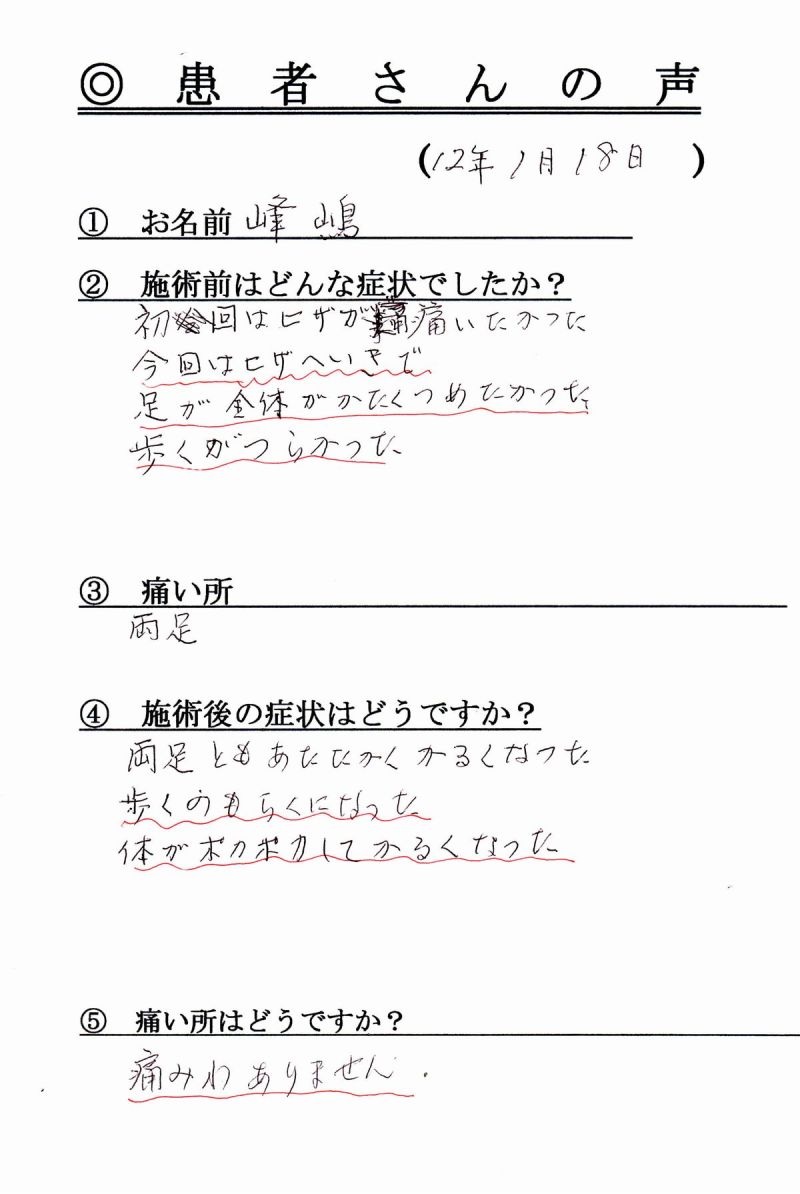 ◎患者さんの声
(12年1月18日)
① お名前 峰嶋
② 施術前はどんな症状でしたか?
初回はヒザが痛いたかった
今回はヒザへいきで
足が全体がかたくつめたかった
歩くがつらかった
③ 痛い所
両足
④ 施術後の症状はどうですか?
両足ともあたたかくかるくなった
歩くのもらくになった
体がポカポカしてかるくなった
⑤ 痛い所はどうですか?
痛みわありません.